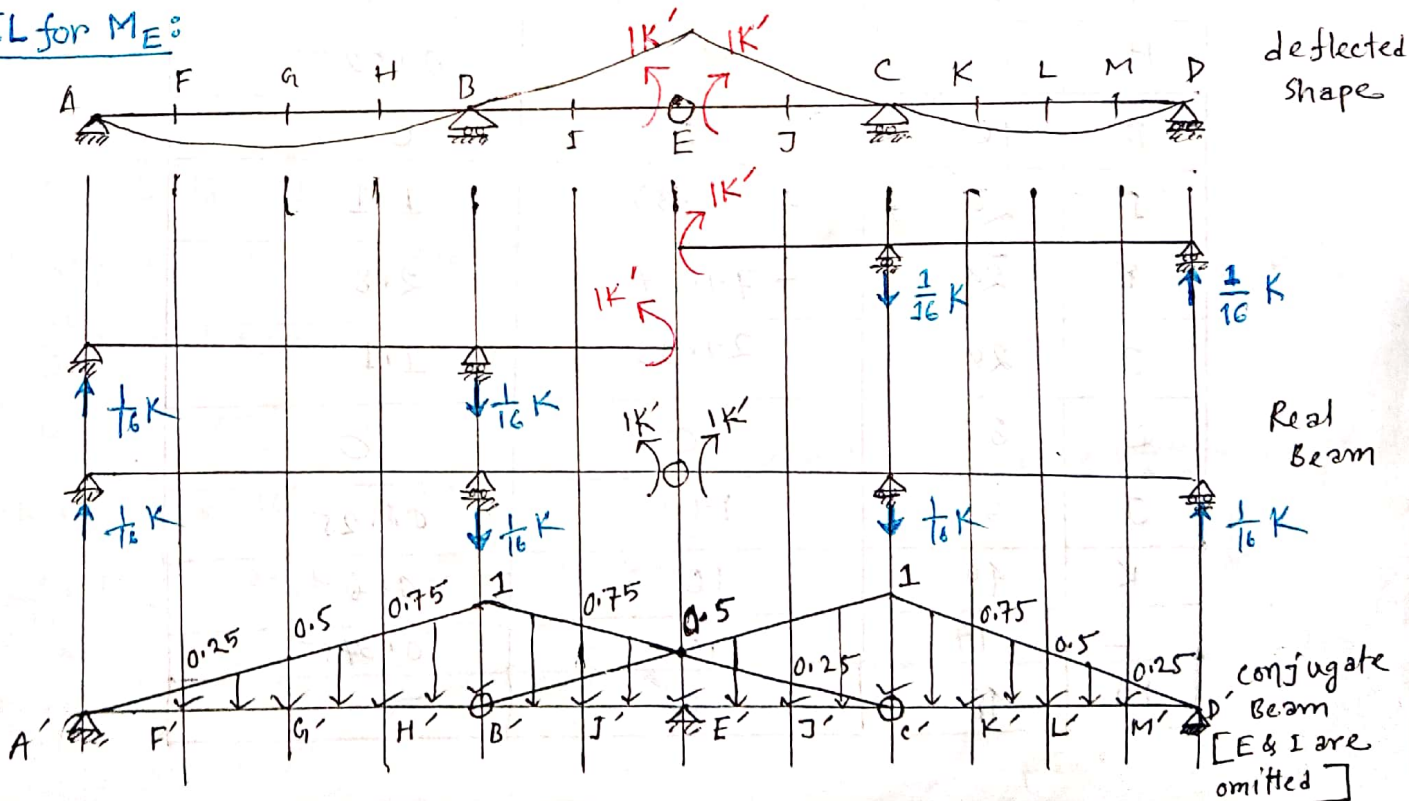 IL for ME:
1K' 1K'
deflected
shape
A F G H B C K L M D
I E J
1K'
1K'
1/16 K 1/16 K
1/16 K 1/16 K
1K' 1K'
Real
Beam
1/16 K 1/16 K 1/16 K 1/16 K
0.25 0.5 0.75 1 0.75 0.5 0.25 1 0.75 0.5 0.25
A' F' G' H' B' I' E' J' C' K' L' M' D'
conjugate
Beam
[E & I are
omitted]